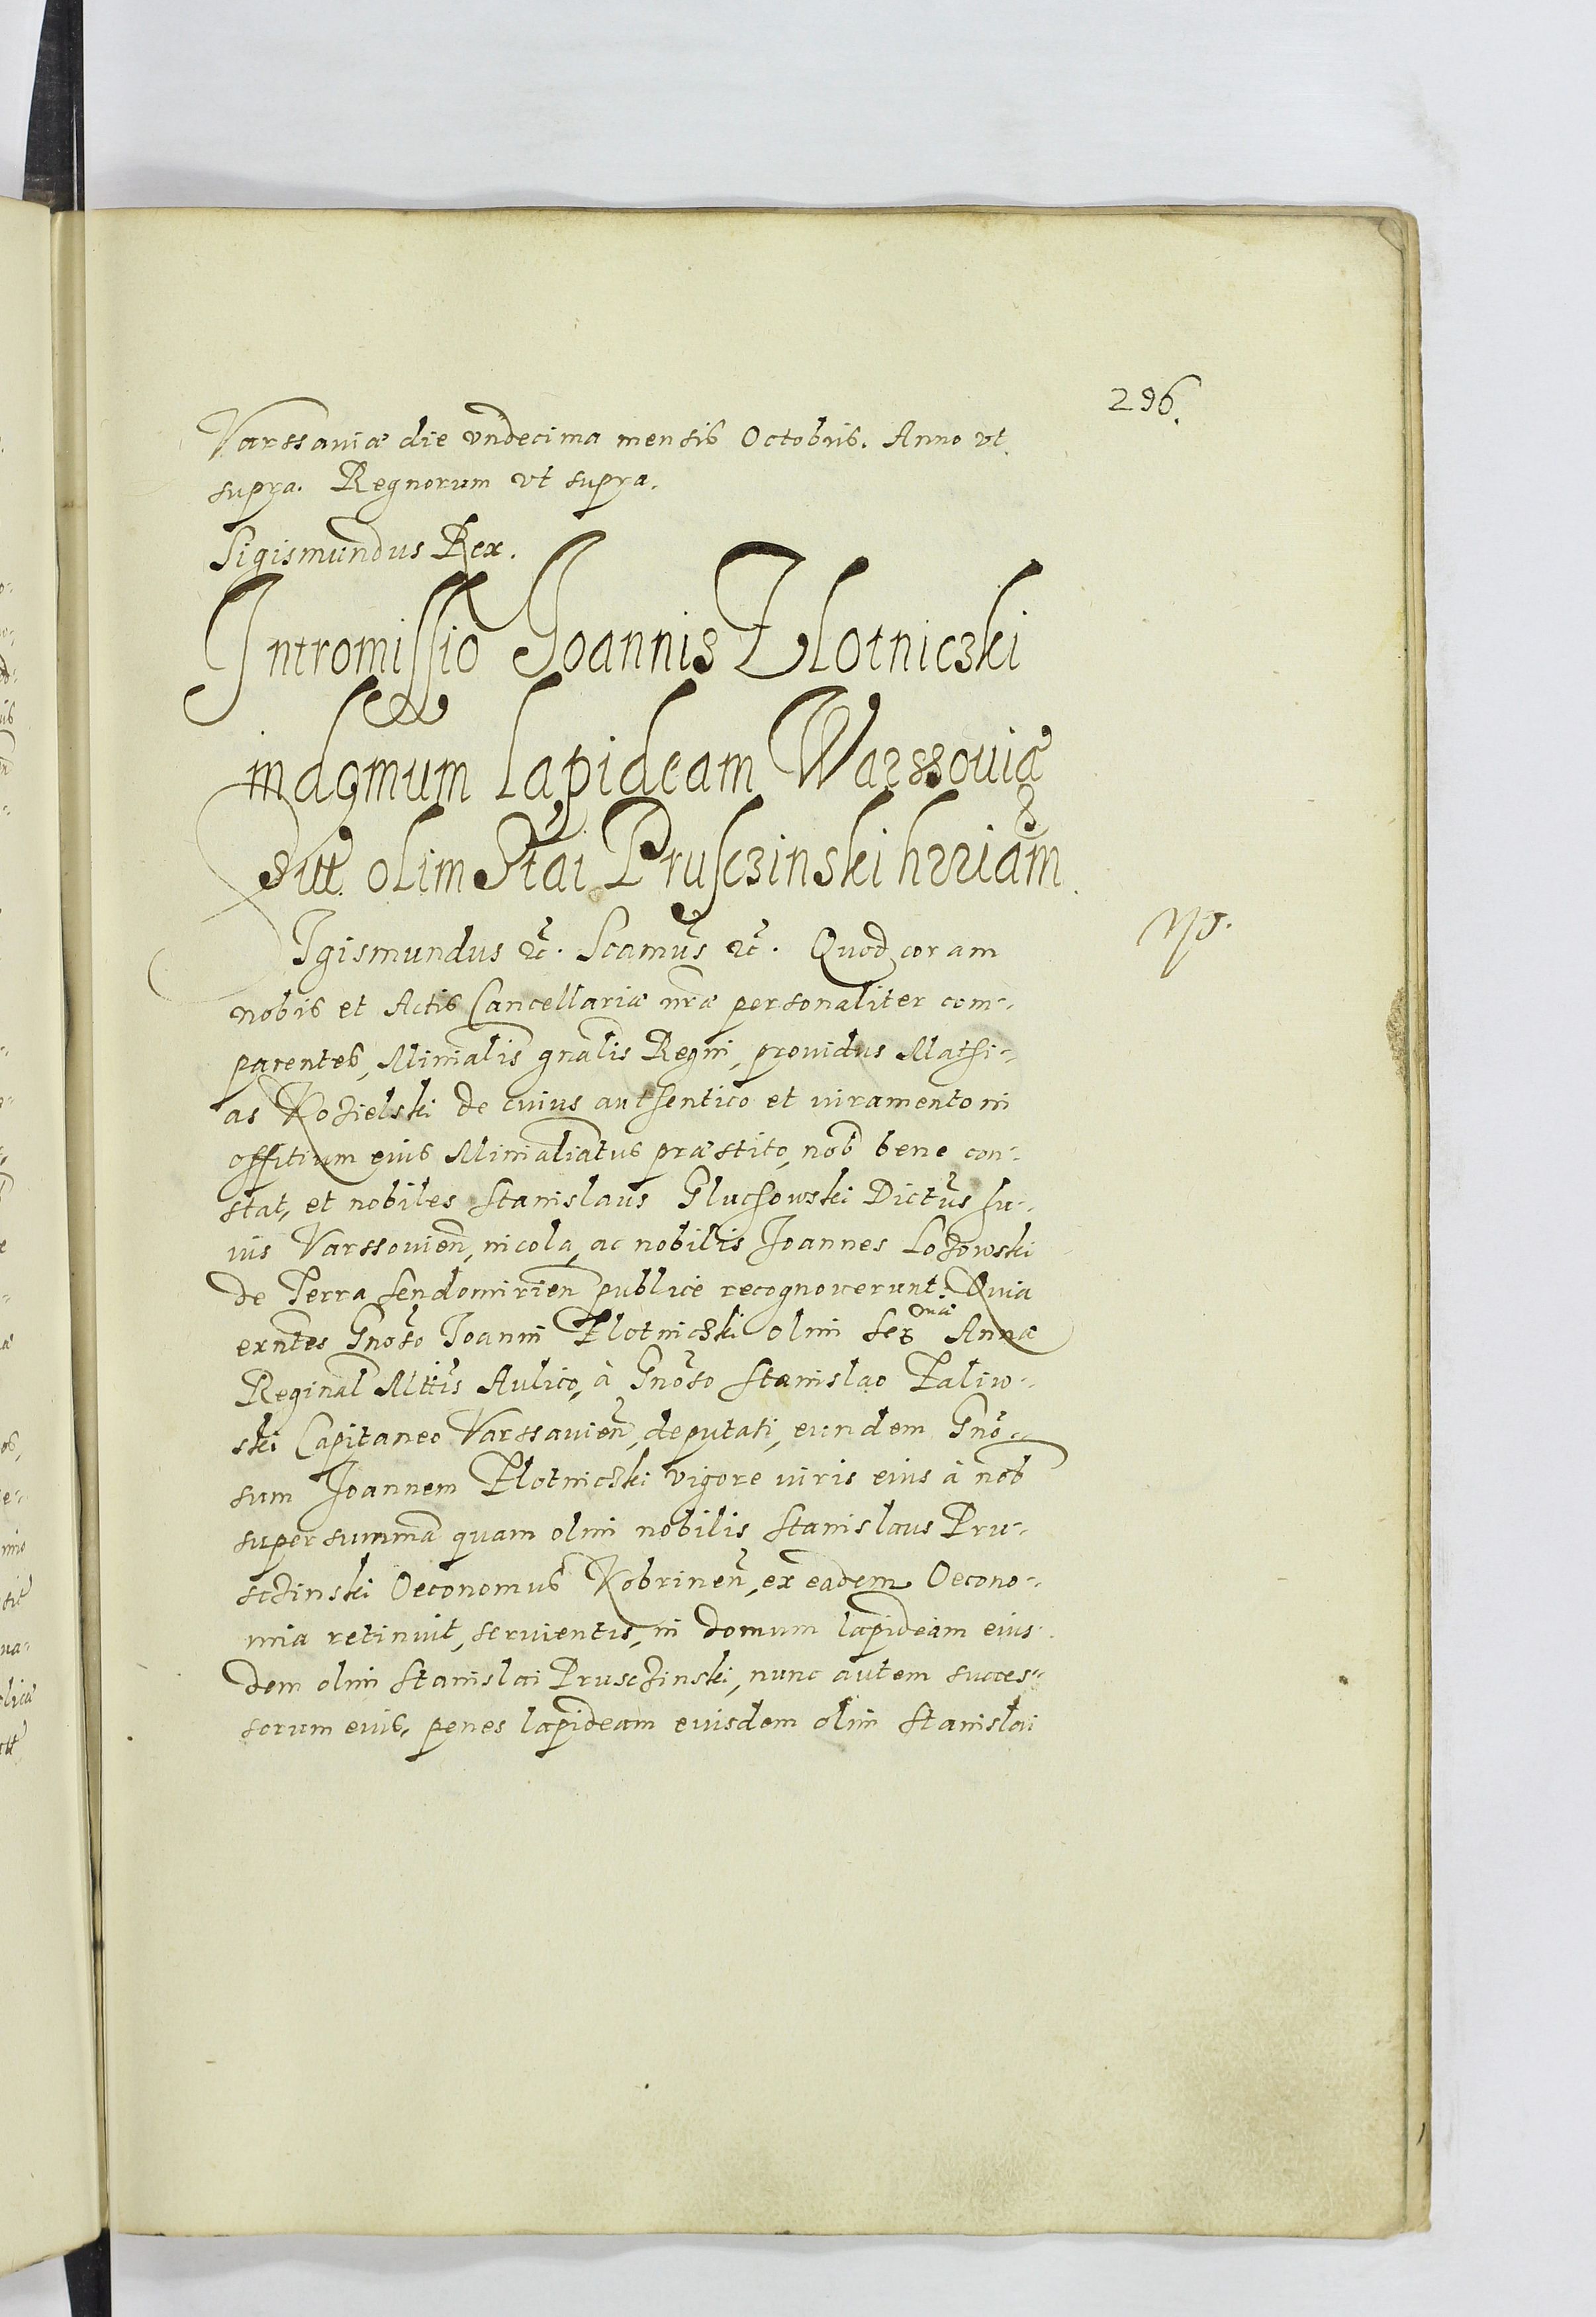 296.
Varssaviæ die vndecima mensis Octobris. Anno vt
supra. Regnorum vt supra.
Sigismundus Rex.
Intromissio Joannis Zlotniczki
in domum lapideam Warssouiæ
sitt. olim Stai Prusczinski hrriam
Sigismundus &c. Scamus &c. Quod coram
nobis et Actis Cancellariæ nræ personaliter com-
parentes, Minialis gnalis Regni, prouidus Mathi-
as Kozielski de cuius authentico et iuramento in
offitium eius Minialiatus præstito, nob bene con-
stat, et nobiles Stanislaus Gluchowski Dictus hu-
ius Varssouien, incola, ac nobilis Joannes Lozowski
de Terra Sendomirien publice recognouerunt. Quia
exntes Gnoso Joanni Zlotniczki olim Ser mæ Annæ
Reginal Mttis Aulico, à Gnoso Stanislao Zaliw-
ski Capitaneo Varssauien, deputati, eundem Gno-
sum Joannem Zlotniczki vigore iuris eius à nob
super summa quam olim nobilis Stanislaus Pru-
sczinski Oeconomus Kobrinen, ex eadem Oecono-
mia retinuit, seruientis, in domum lapideam eius-
dem olim Stanislai Prusczinski, nunc autem succes-
sorum eius, penes lapideam euisdem olim Stanislai